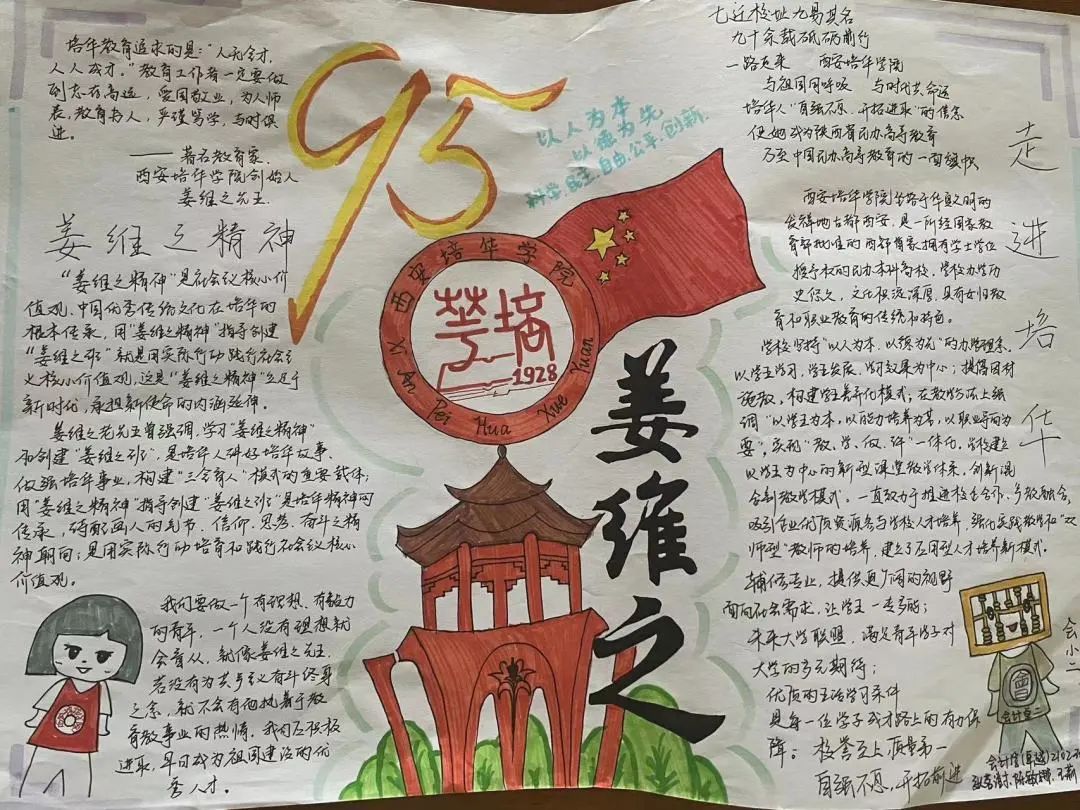 培华教育追求的是："人无全才,
人人成才。"教育工作者一定要做
到志存高远，爱国敬业，为人师
表，教书育人，严谨笃学，与时俱
进。
——著名教育家.
西安培华学院创始人
姜维之先生.
姜维之精神
"姜维之精神"是社会主义核心价
值观、中国优秀传统文化在培华的
根本传承，用"姜维之精神"指导创建
"姜维之班"就是用实际行动践行社会主
义核心价值观,这是"姜维之精神"立足于
新时代，承担新使命的内涵延伸。
姜维之老先生曾强调,学习"姜维之精神"
和创建"姜维之班"，是培华人讲好培华故事、
做强培华事业，构建"三全育人"模式的重要载体；
用"姜维之精神"指导创建"姜维之班"是培华精神的
传承，
神
是用实际行动培育和践行社会主义核心
价值观。
我们要做一个有理想、有毅力
的青年，一个人没有理想就
会盲从，就像姜维之先生,
若没有为共产主义奋斗终身
之念，就不会有他执着于教
育教事业的热情，我们应积极
进取，早日成为祖国建设的优
秀人才。
95
以人为本
以德为先
科学.民主.自由.公平.创新.
西安培华学院
培华
1928
Pei Hua Xue Yuan
姜维之
七迁校址九易其名
九十余载砥砺前行
一路走来 西安培华学院
与祖国同呼吸 与时代共命运
培华人"自强不息、开拓进取"的信念
使她成为陕西省民办高等教育
乃至中国民办高等教育的一面旗帜
走进培华
西安培华学院坐落于华夏文明的
发祥地古都西安，是一所经国家教
育部批准的西部首家拥有学士学位
授予权的民办本科高校，学校办学历
史悠久，文化根流深厚，具有女子教
育和职业教育的传统和特色。
学校坚持"以人为本，以德为先"的办学理念.
以学生学习，学生发展，学习效果为中心；提倡因材
施教，构建学生差异化模式，在教学方法上强
调"以学生为本，以能力培养为基，以职业导向为
要"，实现"教、学、做、评"一体化，学校建立
以学生为中心的新型课堂教学体系，创新混
合制教学模式。一直致力于推进校企合作、产教融合,
吸引企业优质资源参与学校人才培养，强化实践教学和"双
师型"教师的培养，建立了应用型人才培养新模式。
辅修专业，提供更广阔的视野
面向社会需求，让学生一专多能；
未来大学联盟，满足青年学子对
大学的多元期待；
优质的生活学习条件
是每一位学子成才路上的有力保
障；校誉至上 质量第一
自强不息，开拓前进
会小二
會
会计堂二